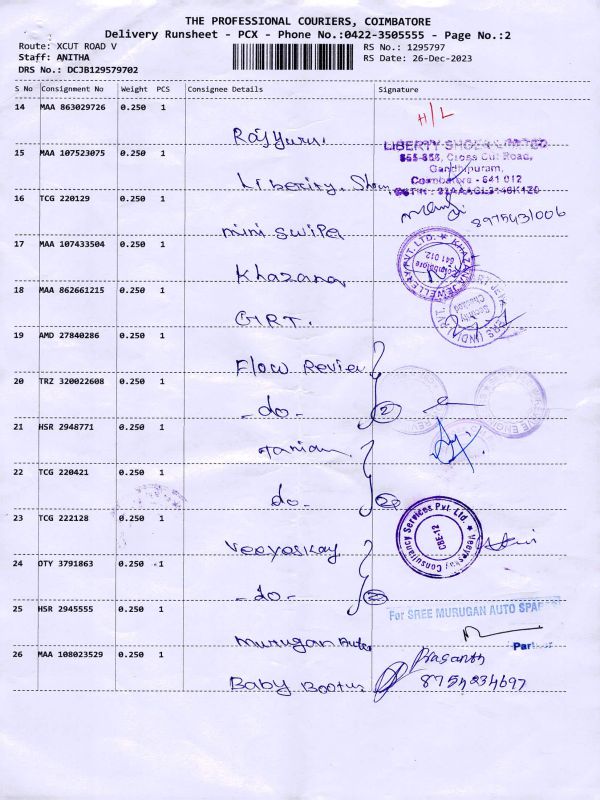 THE PROFESSIONAL COURIERS, COIMBATORE
Delivery Runsheet - PCX - Phone No.:0422-3505555 - Page No.:2
Route: XCUT ROAD V
RS No.: 1295797
Staff: ANITHA
RS Date: 26-Dec-2023
DRS No.: DCJB129579702
S No Consignment No Weight PCS Consignee Details Signature
14 MAA 863029726 0.250 1
H/L
15 MAA 107523075 0.250 1
LIBERTY SHOES LIMITED
Cross Cut Road,
Gandhipuram,
Coimbatore - 641 012
16 TCG 220129 0.250 1
8975431006
mini swipe
17 MAA 107433504 0.250 1
KHAZANA JEWELLERY PVT. LTD.
Coimbatore
641 012.
Khazana
18 MAA 862661215 0.250 1
GRT.
19 AMD 27840286 0.250 1
Flow Review
20 TRZ 320022608 0.250 1
-do- 2
21 HSR 2948771 0.250 1
22 TCG 220421 0.250 1
do-
23 TCG 222128 0.250 1
Veeyeskay Consultancy Services Pvt. Ltd.
CBE-12
Veeyeskay
24 OTY 3791863 0.250 1
-do-
25 HSR 2945555 0.250 1
For SREE MURUGAN AUTO SPARES
Murugan Auto
Partner
26 MAA 108023529 0.250 1
Prasanth
8754234697
Baby Bootus